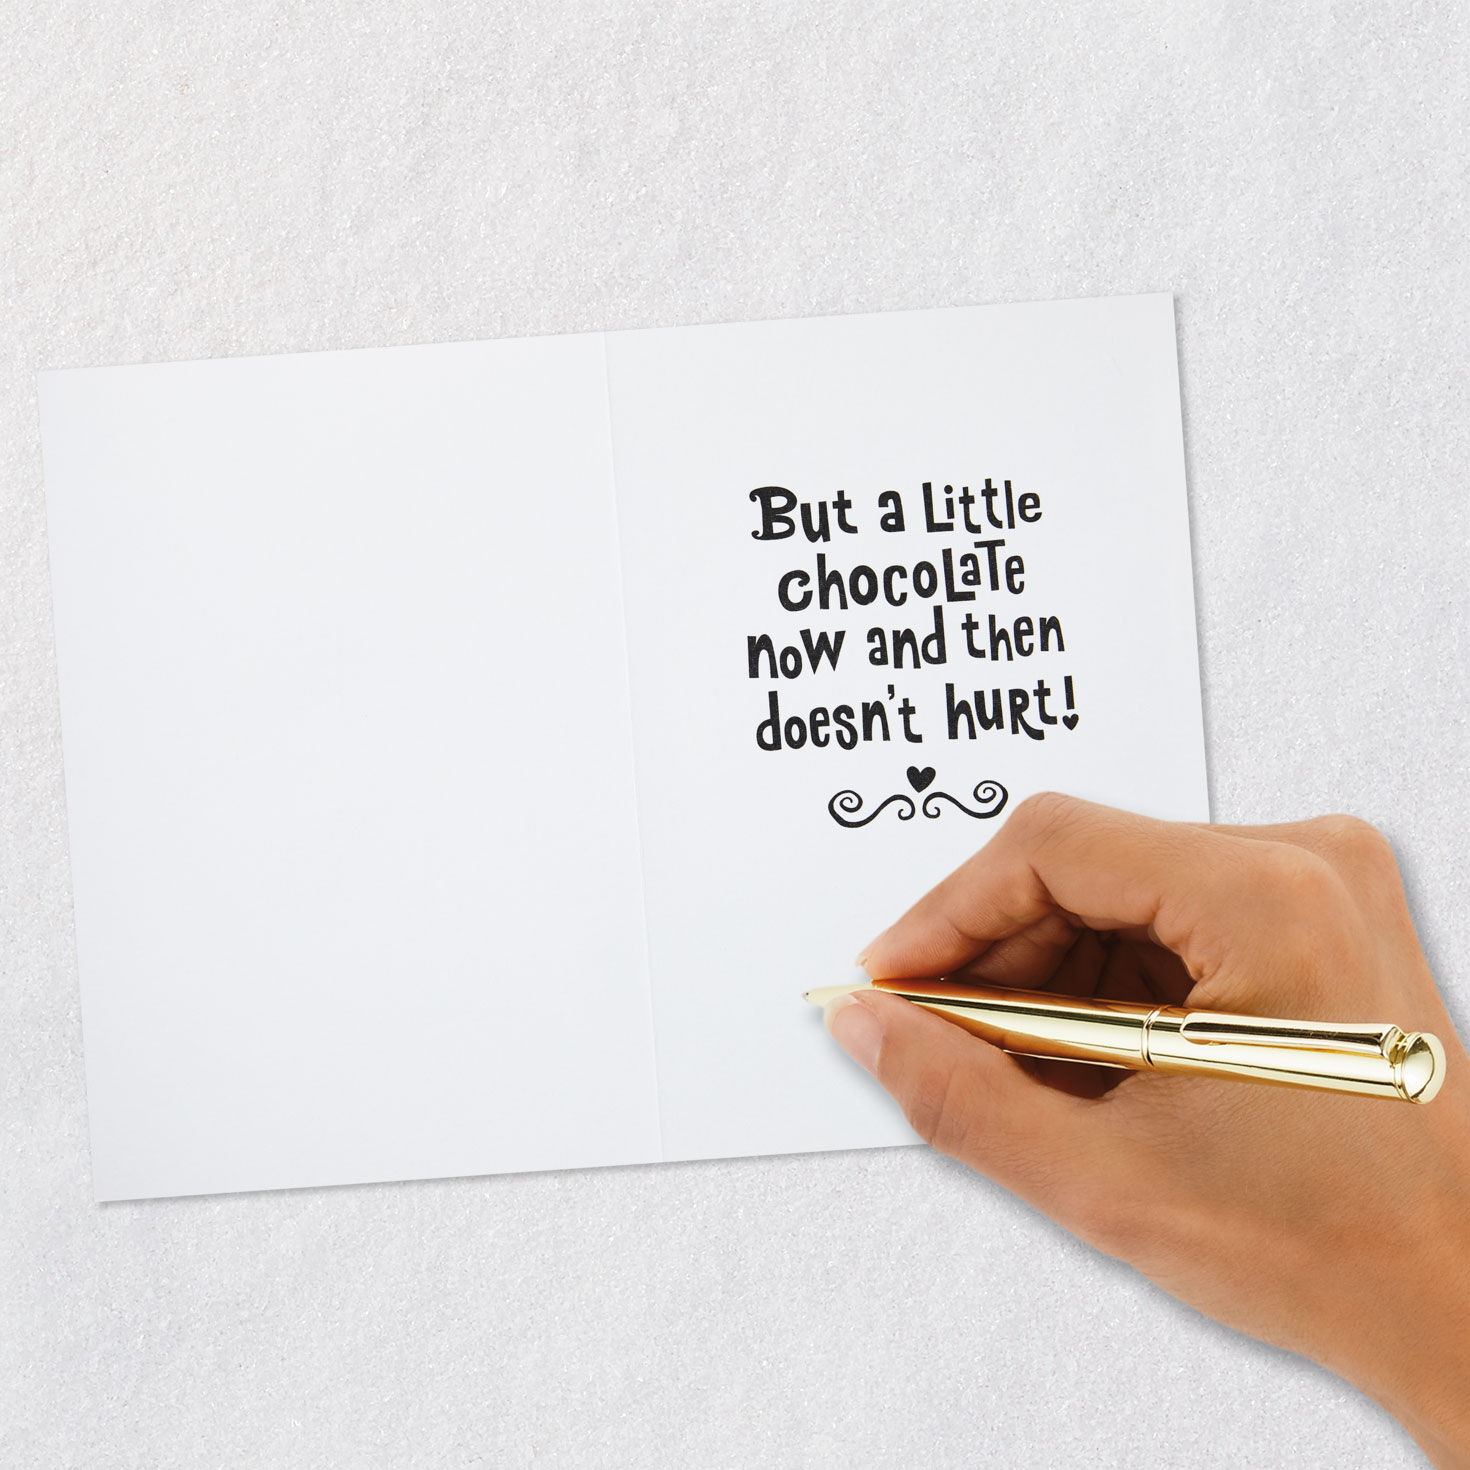 But a little
chocolate
now and then
doesn't hurt!